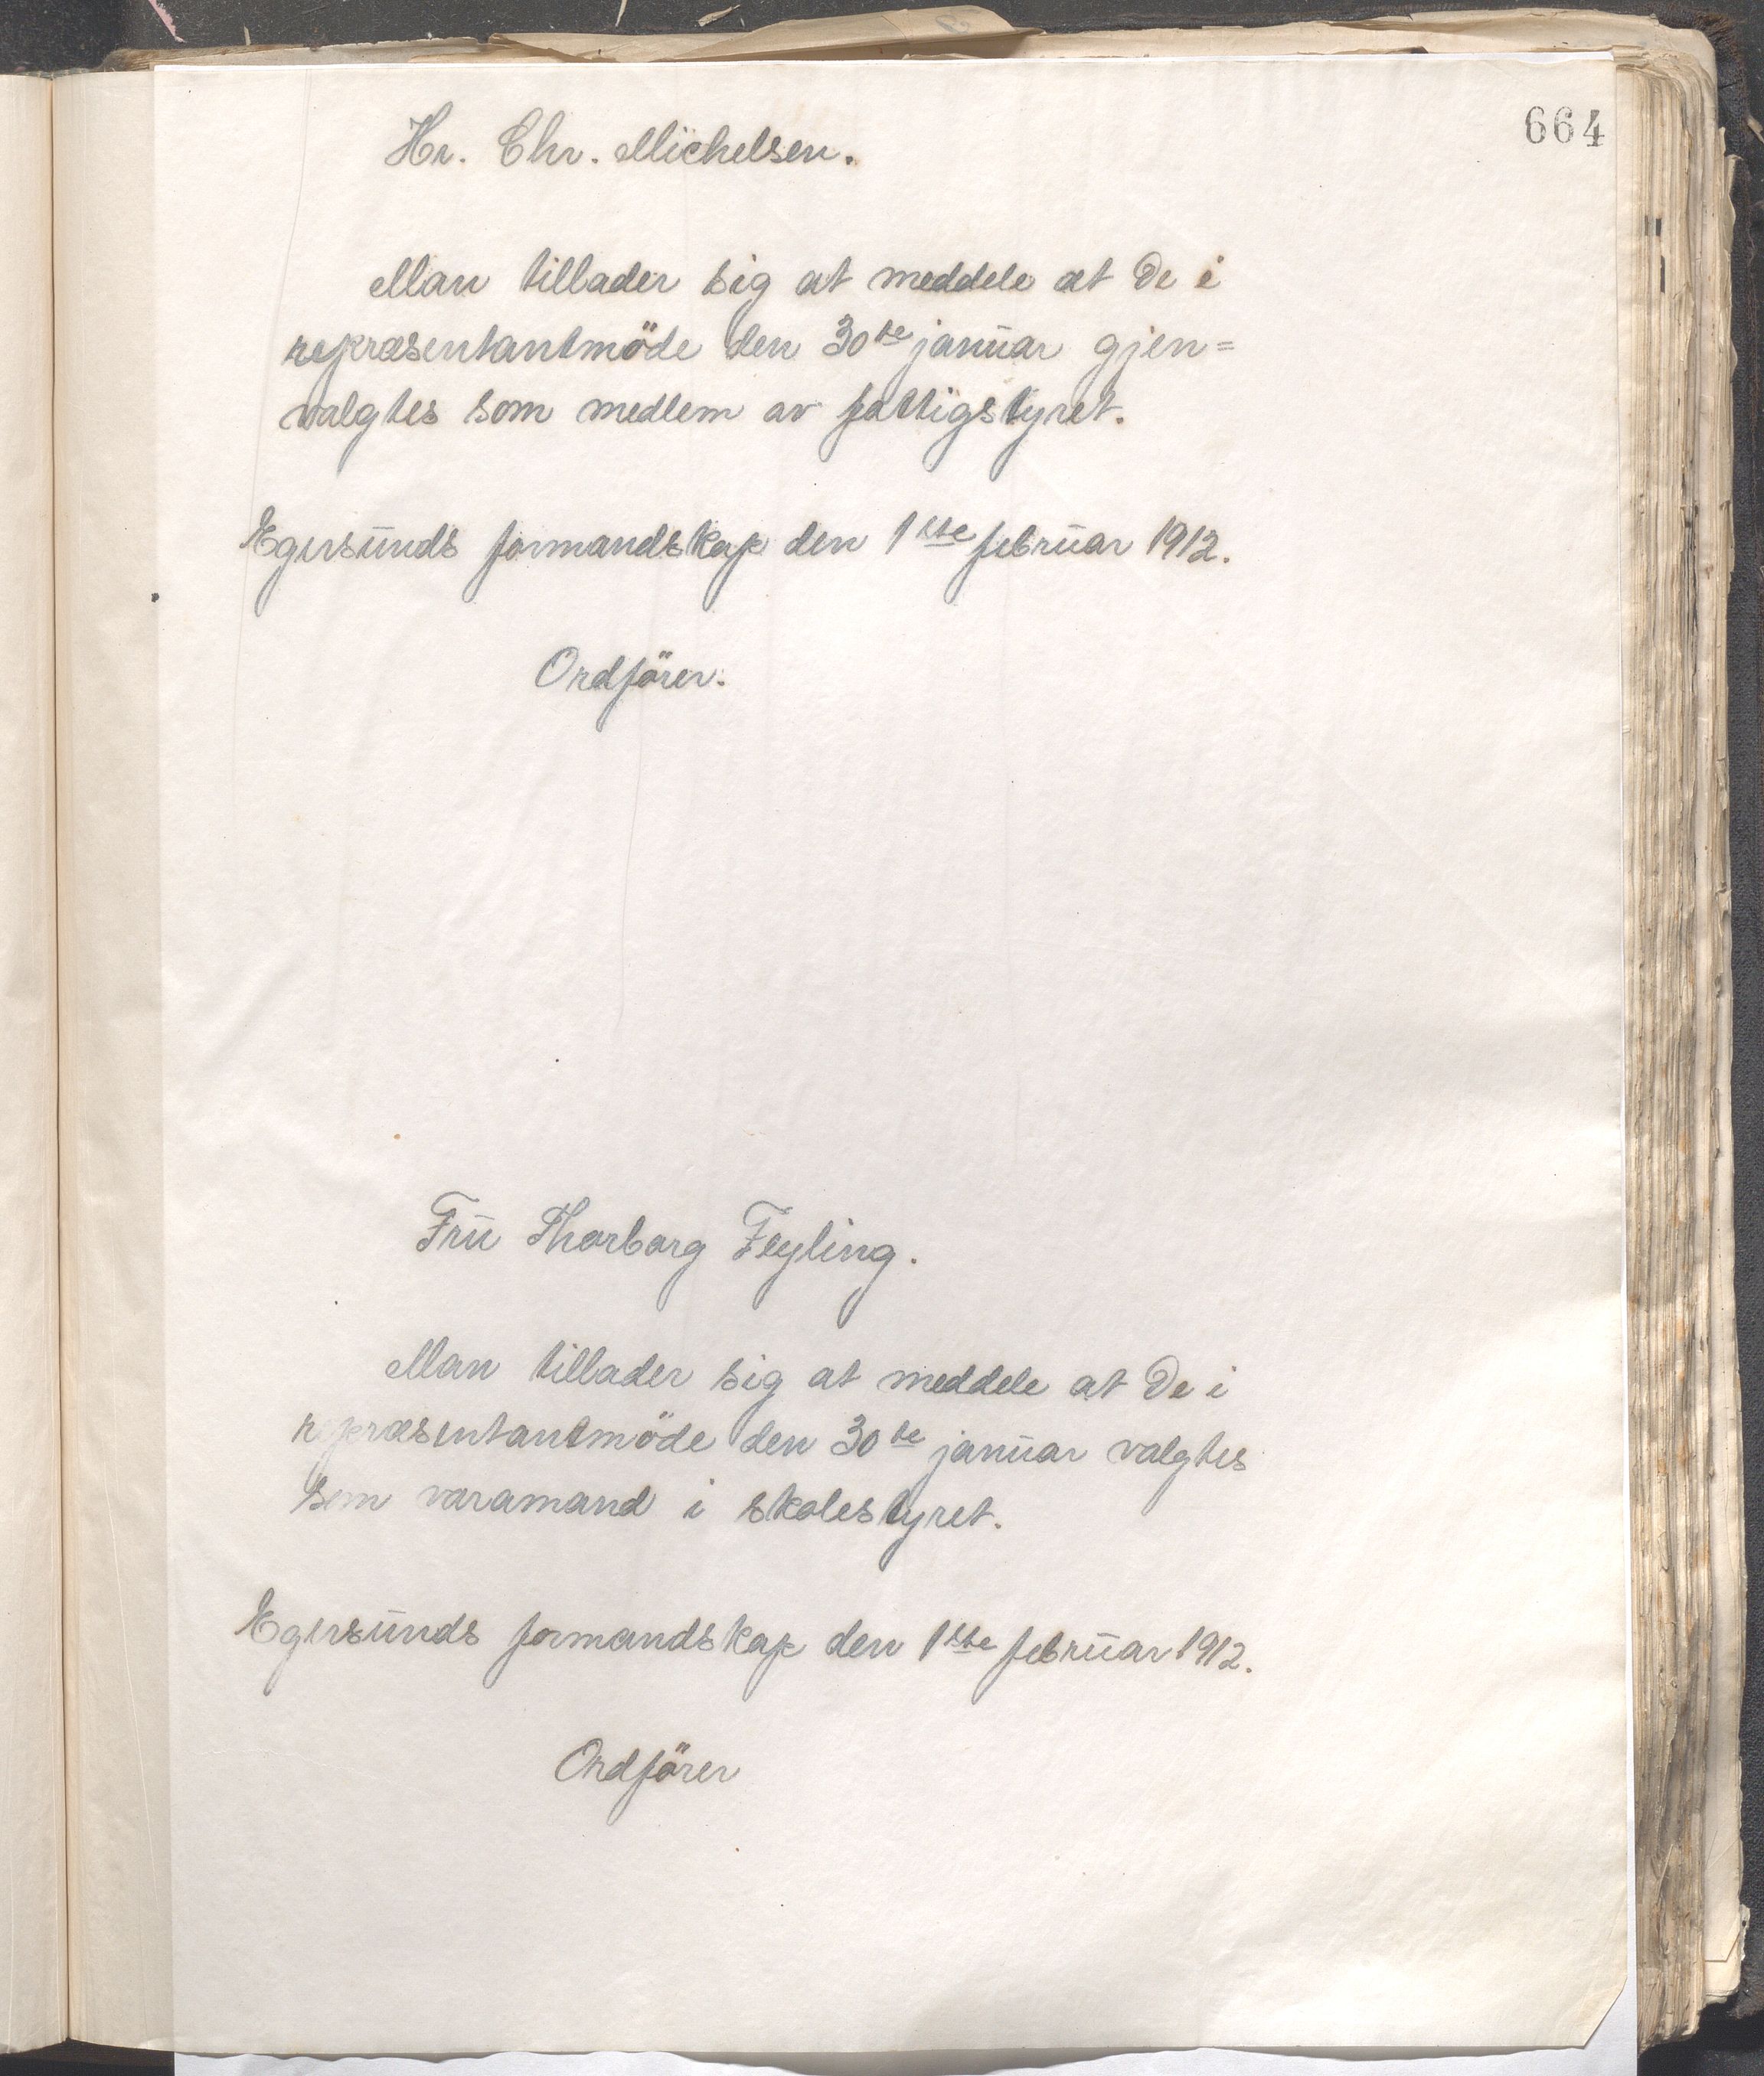 664
Hr. Chr. Michelsen.
Man tillader sig at meddele at De i
repræsentantmöde den 30te januar gjen=
valgtes som medlem av fattigstyret.
Egersunds formandskap den 1ste februar 1912.
Ordförer.
Fru Thorborg Feyling.
Man tillader sig at meddele at De i
repræsentantmöde den 30te januar valgtes
som varamand i skolestyret.
Egersunds formandskap den 1ste februar 1912.
Ordförer